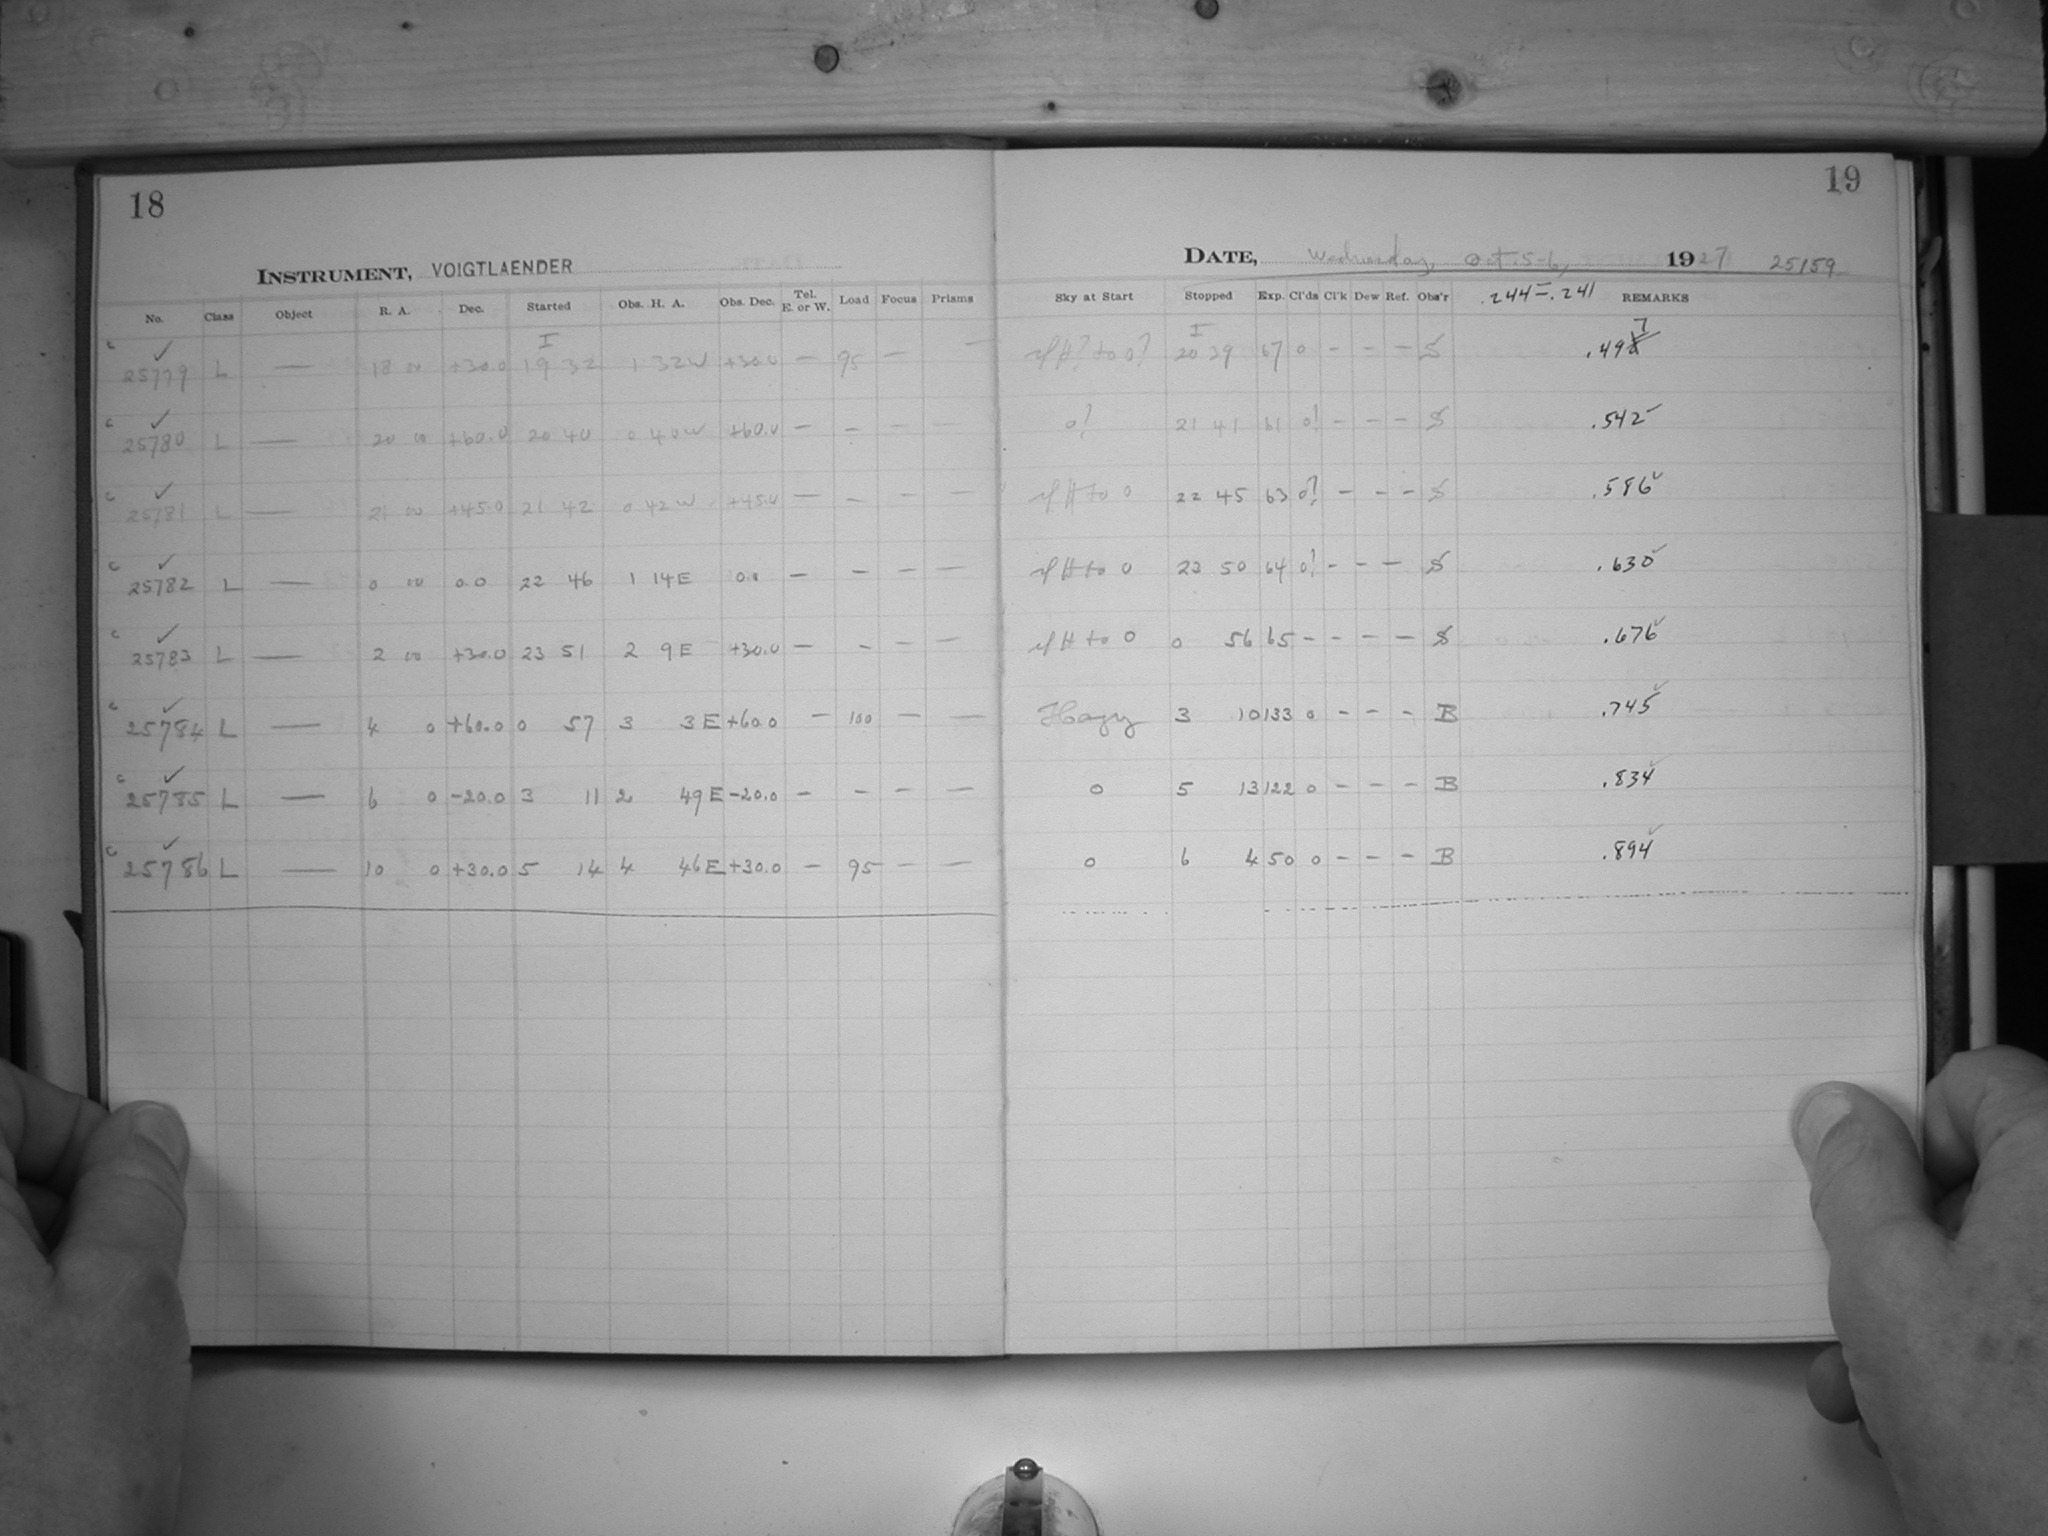 18
INSTRUMENT, VOIGTLAENDER
No. Class Object R. A. Dec. Started Obs. H. A. Obs. Dec. Tel. E. or W. Load Focus Prisms
c 25779 ✓ L — 18 00 +30.0 I 19 32 1 32W +30.0 — 95 — —
c 25780 ✓ L — 20 00 +60.0 20 40 0 40W +60.0 — — — —
c 25781 ✓ L — 21 00 +45.0 21 42 0 42W +45.0 — — — —
c 25782 ✓ L — 0 00 0.0 22 46 1 14E 0.0 — — — —
c 25783 ✓ L — 2 00 +30.0 23 51 2 9E +30.0 — — — —
c 25784 ✓ L — 4 0 +60.0 0 57 3 3E +60.0 — 100 — —
c 25785 ✓ L — 6 0 -20.0 3 11 2 49E -20.0 — — — —
c 25786 ✓ L — 10 0 +30.0 5 14 4 46E +30.0 — 95 — —
19
DATE, Wednesday, Oct. 5-6, 1927 25159
Sky at Start Stopped Exp. Cl'ds Cl'k Dew Ref. Obs'r .244 — .241 REMARKS
to 0? I 20 39 67 0 - - - S .497
0? 21 41 61 0? - - - S .542
to 0 22 45 63 0? - - - S .586
to 0 23 50 64 0? - - - S .630
to 0 0 56 65 - - - - S .676
Hazy 3 10 133 0 - - - B .745
0 5 13 122 0 - - - B .834
0 6 4 50 0 - - - B .894